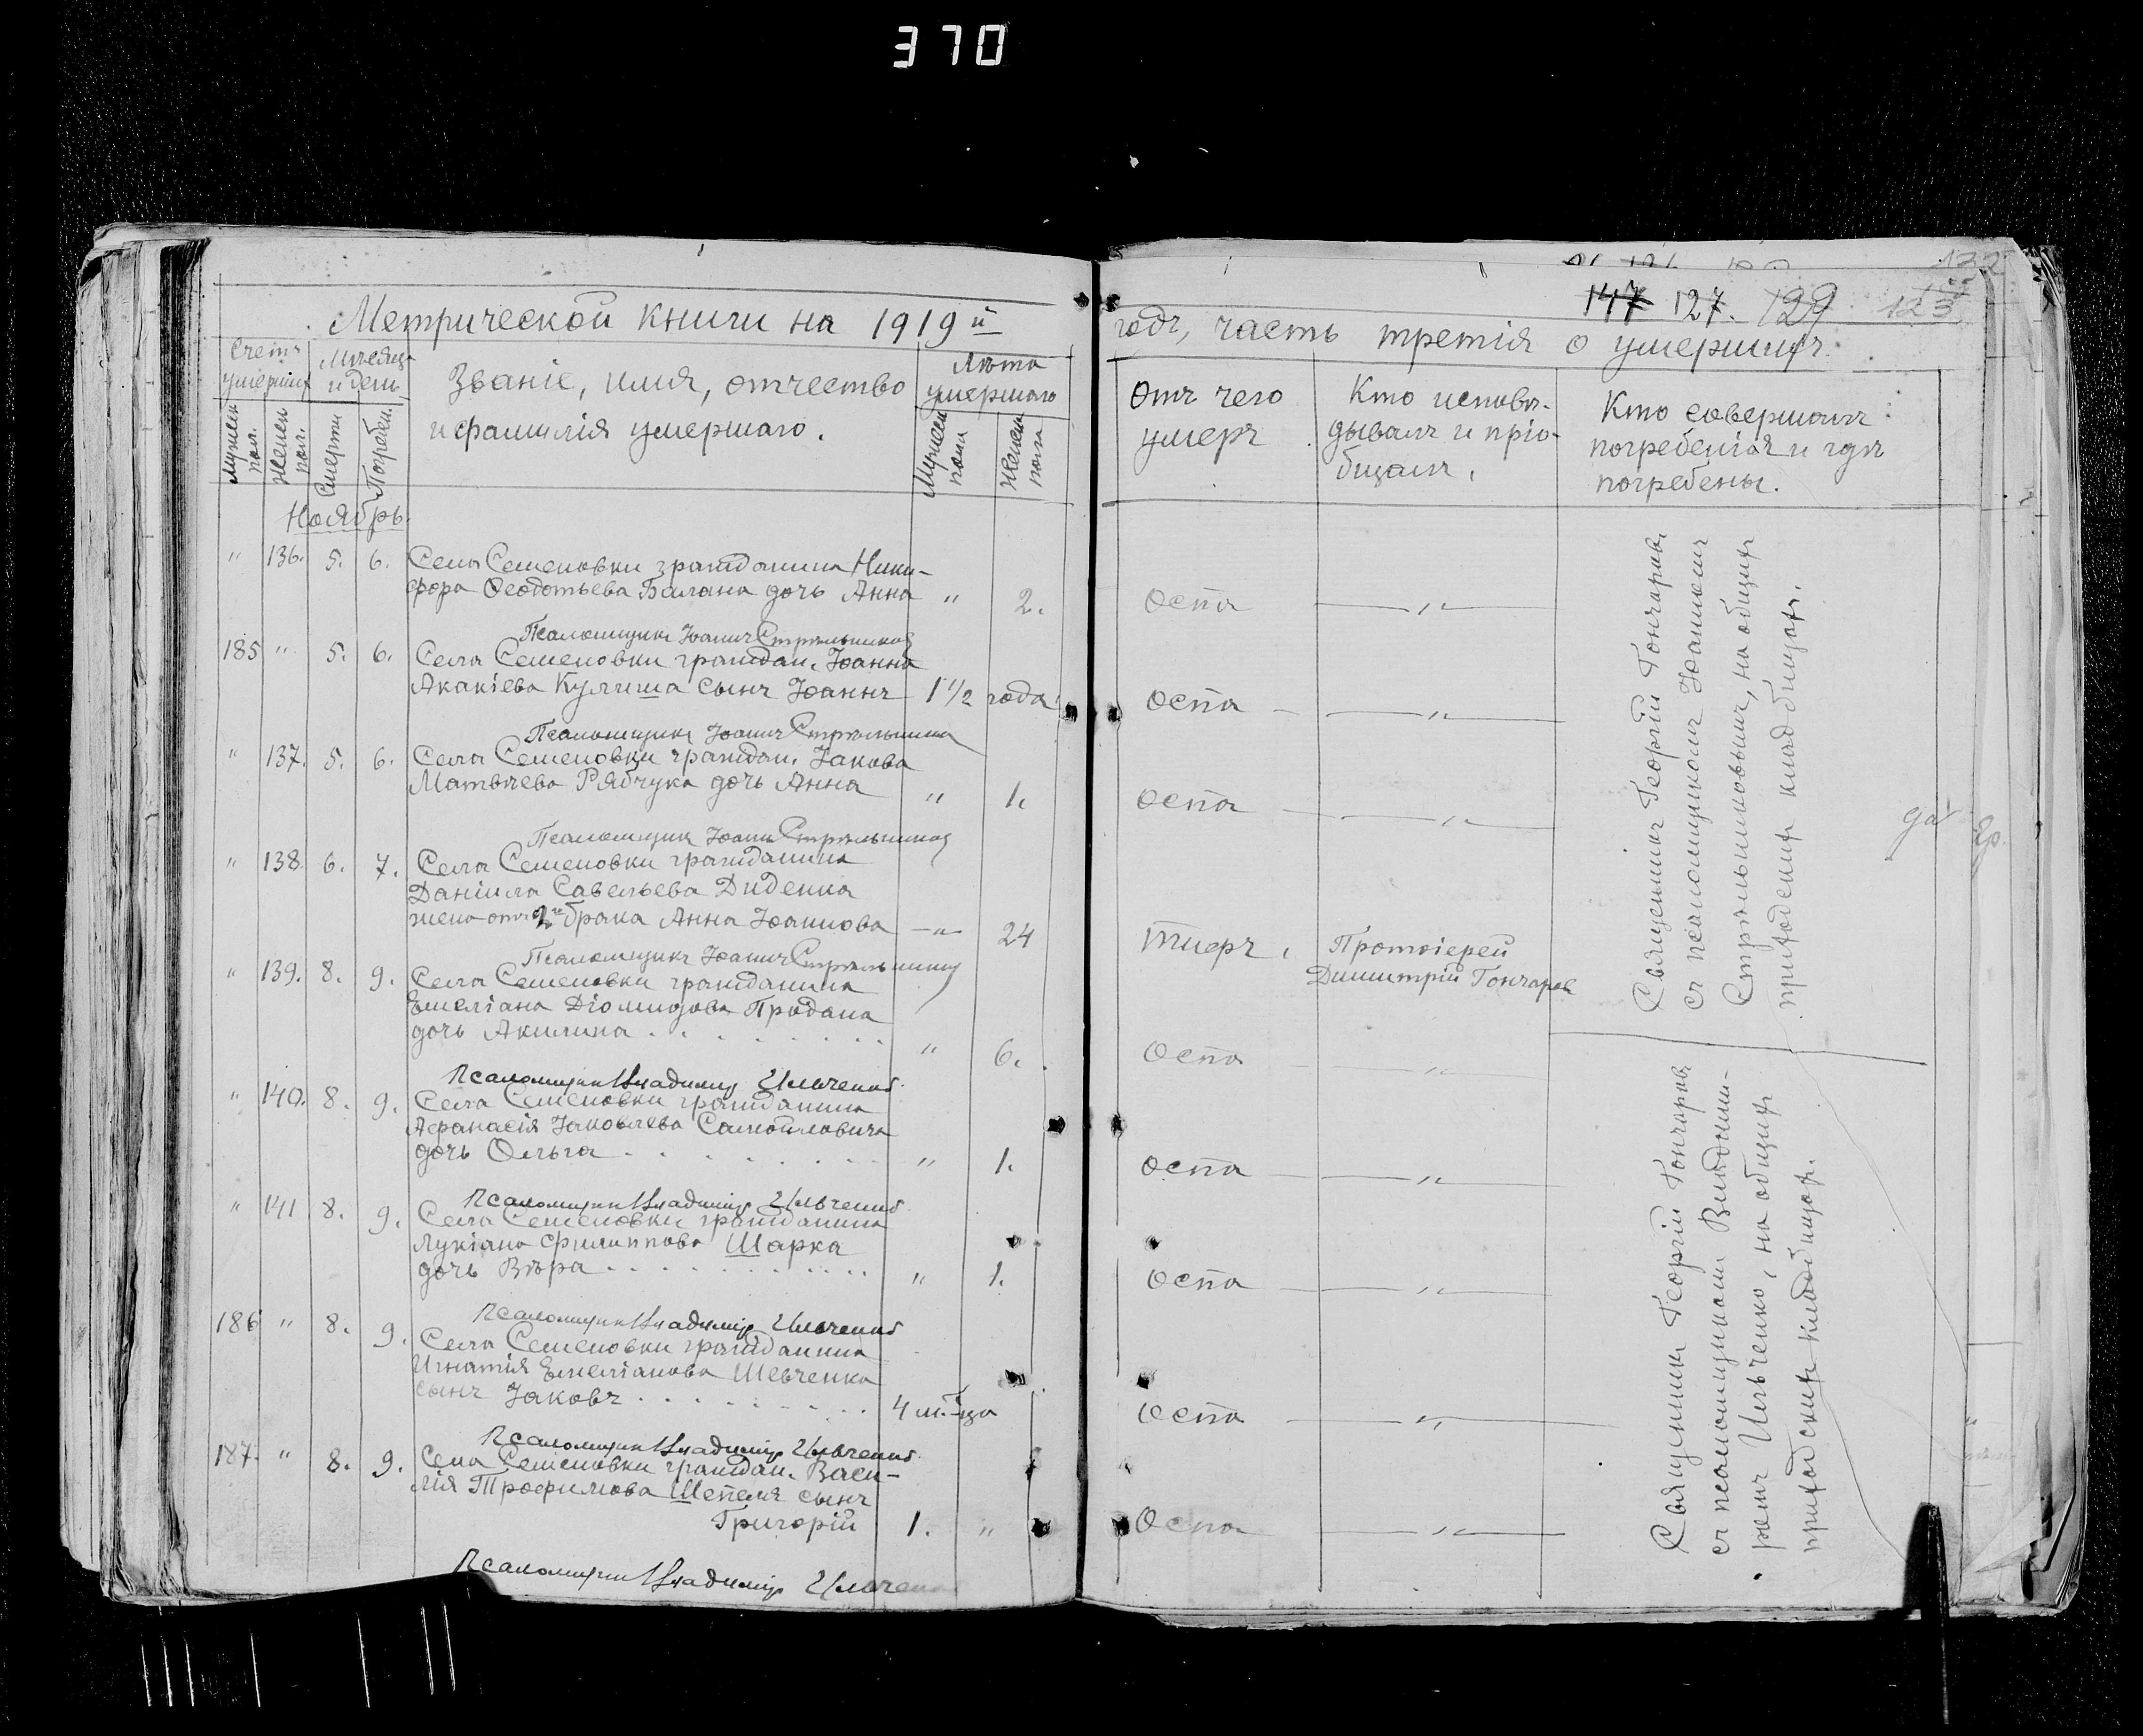 370
Метрической книги на 1919 й
Счетъ умершихъ
Мужеск. пол.
Женск. пол.
Мѣсяцъ и день
Смерти
Погребен.
Званіе, имя, отчество
и фамилія умершаго.
Лѣта
умершаго
Мужеск. пола
Женск. пола
Ноябрь.
" 136. 5. 6. Села Семеновки гражданина Ники-
фора Ѳеодотьева Балана дочь Анна " 2.
Псаломщикъ Іоаннъ Стрѣльниковъ
185 " 5. 6. Села Семеновки граждан. Іоанна
Акакіева Кулиша сынъ Іоаннъ 1 1/2 года
Псаломщикъ Іоаннъ Стрѣльниковъ
" 137. 5. 6. Села Семеновки граждан. Іакова
Матвѣева Рябчука дочь Анна " 1.
Псаломщикъ Іоаннъ Стрѣльниковъ
" 138. 6. 7. Села Семеновки гражданина
Даніила Савельева Диденка
жена отъ 2го брака Анна Іоаннова —"— 24
Псаломщикъ Іоаннъ Стрѣльниковъ
" 139. 8. 9. Села Семеновки гражданина
Емеліана Діомидова Продана
дочь Акилина . . . . . . . . " 6.
Псаломщикъ Владимір Ильченко
" 140. 8. 9. Села Семеновки гражданина
Афанасія Іаковлева Самойловича
дочь Ольга . . . . . . . . " 1.
Псаломщикъ Владимір Ильченко
" 141 8. 9. Села Семеновки гражданина
Лукіана Филиппова Шарка
дочь Вѣра . . . . . . . . . . " 1.
Псаломщикъ Владимір Ильченко
186 " 8. 9. Села Семеновки гражданина
Игнатія Емеліанова Шевченка
сынъ Іаковъ . . . . . . . . 4 м-ца
Псаломщикъ Владимір Ильченко
187. " 8. 9. Села Семеновки граждан. Васи-
лія Трофимова Шепеля сынъ
Григорій 1. "
Псаломщикъ Владимір Ильченко
132
147 127. 129 123
годъ, часть третія о умершихъ.
Отъ чего
умеръ
Кто исповѣ-
дывалъ и пріо-
бщалъ.
Кто совершалъ
погребеніе и гдѣ
погребены.
Оспа —"—
Оспа —"—
Оспа —"—
Тифъ. Протоіерей
Димитрій Гончаров
Оспа —"—
Оспа —"—
Оспа —"—
Оспа —"—
Оспа —"—
Священникъ Георгій Гончаровъ
съ псаломщикомъ Іоанномъ
Стрѣльниковымъ, на общемъ
приходскомъ кладбищѣ.
Священникъ Георгій Гончаровъ
съ псаломщикомъ Владими-
ромъ Ильченко, на общемъ
приходскомъ кладбищѣ.